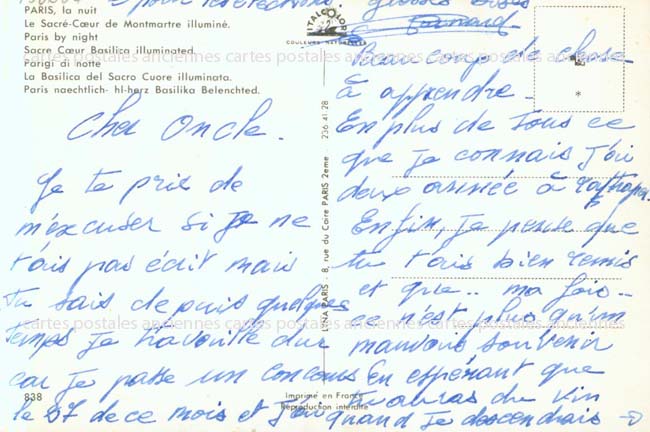 PARIS, la nuit
Le Sacré-Cœur de Montmartre illuminé.
Paris by night
Sacre Cœur Basilica illuminated.
Parigi di notte
La Basilica del Sacro Cuore illuminata.
Paris naechtlich- hl-herz Basilika Belenchted.
cartes postales anciennes cartes postales anciennes cartes postales anciennes
Cher Oncle.
Je te prie de
m'excuser si je ne
t'ais pas écrit mais
Tu sais depuis quelques
temps je travaille dur
car je passe un concours
le 27 de ce mois et j'ai
838
LYNA PARIS - 8, rue du Caire PARIS 2eme 236 41 28
ITALCOLOR
COULEURS NATURELLES
grosses bises
Bernard
Beaucoup de chose
à apprendre.
En plus de tous ce
que je connais j'ai
deux année à rattraper.
Enfin, je pense que
tu t'ais bien remis
et que.. ma foie..
ce n'est plus qu'un
mauvais souvenir
En espérant que
Tu auras du vin
quand je descendrais
cartes postales anciennes cartes postales anciennes cartes postales anciennes
Imprimé en France
Reproduction interdite